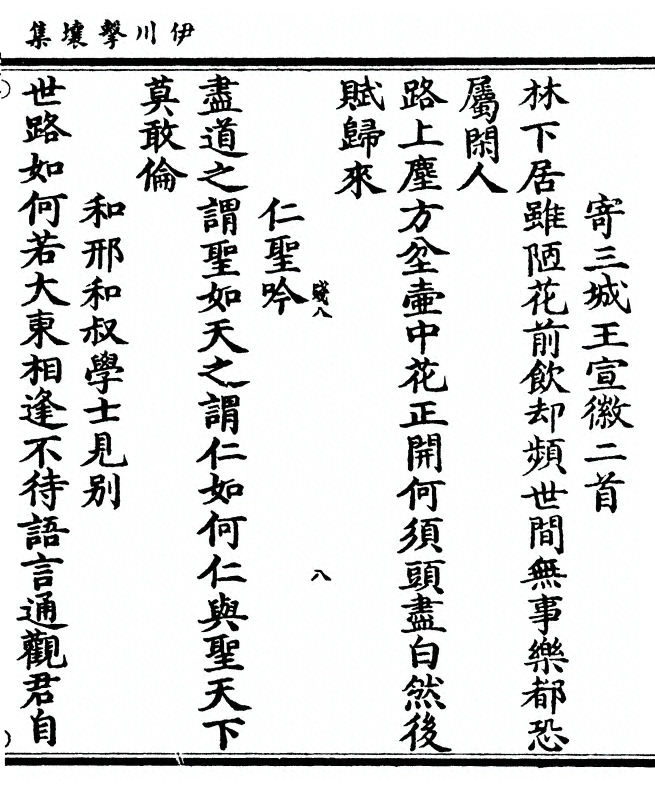 伊川擊壤集
寄三城王宣徽二首
林下居雖陋花前飲却頻世間無事樂都恐
屬閑人
路上塵方坌壷中花正開何須頭盡白然後
賦歸來
八
八
仁聖吟
盡道之謂聖如天之謂仁如何仁與聖天下
莫敢倫
和邢和叔學士見別
世路如何若大東相逢不待語言通觀君自